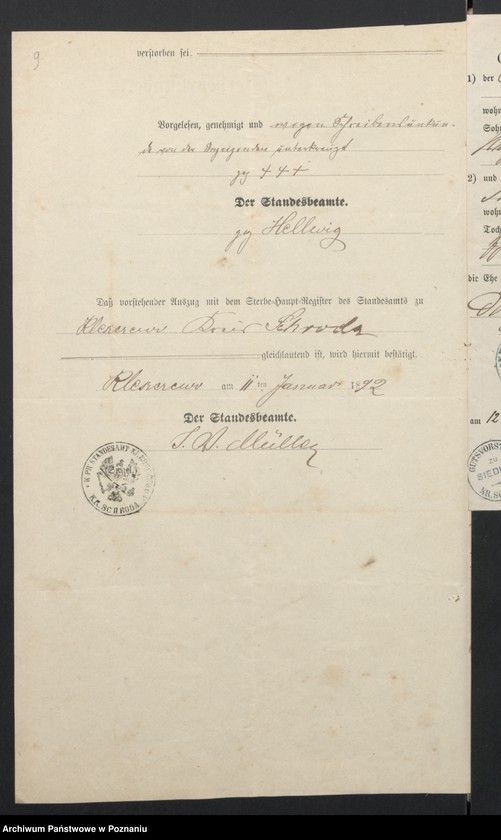 9
verstorben sei.
Vorgelesen, genehmigt und wegen Schreibensunkun-
de von der Anzeigenden unterkreuzt
gez + + +
Der Standesbeamte.
gez Hellwig
Daß vorstehender Auszug mit dem Sterbe-Haupt-Register des Standesamts zu
Kreis Schroda
gleichlautend ist, wird hiermit bestätigt.
am 11 ten Januar 1892
Der Standesbeamte.
Müller
KR. SCHRODA
1) der
wohn
Soh
2) und
wohn
Toch
die Ehe
am 12
GUTSVORST
ZU
SIED
KR. SC
Archiwum Państwowe w Poznaniu